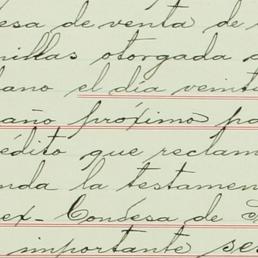 esa de venta de
nillas otorgada
ano el dia veint
año próximo pa
édito que reclam
nda la testamen
ex-Condesa de
importante se